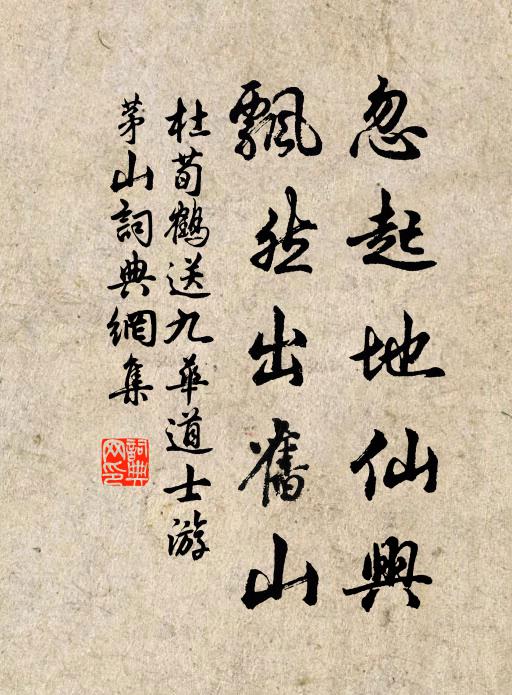 忽起地仙興
飄然出舊山
杜荀鶴送九華道士游
茅山詞典網集
詞典网印